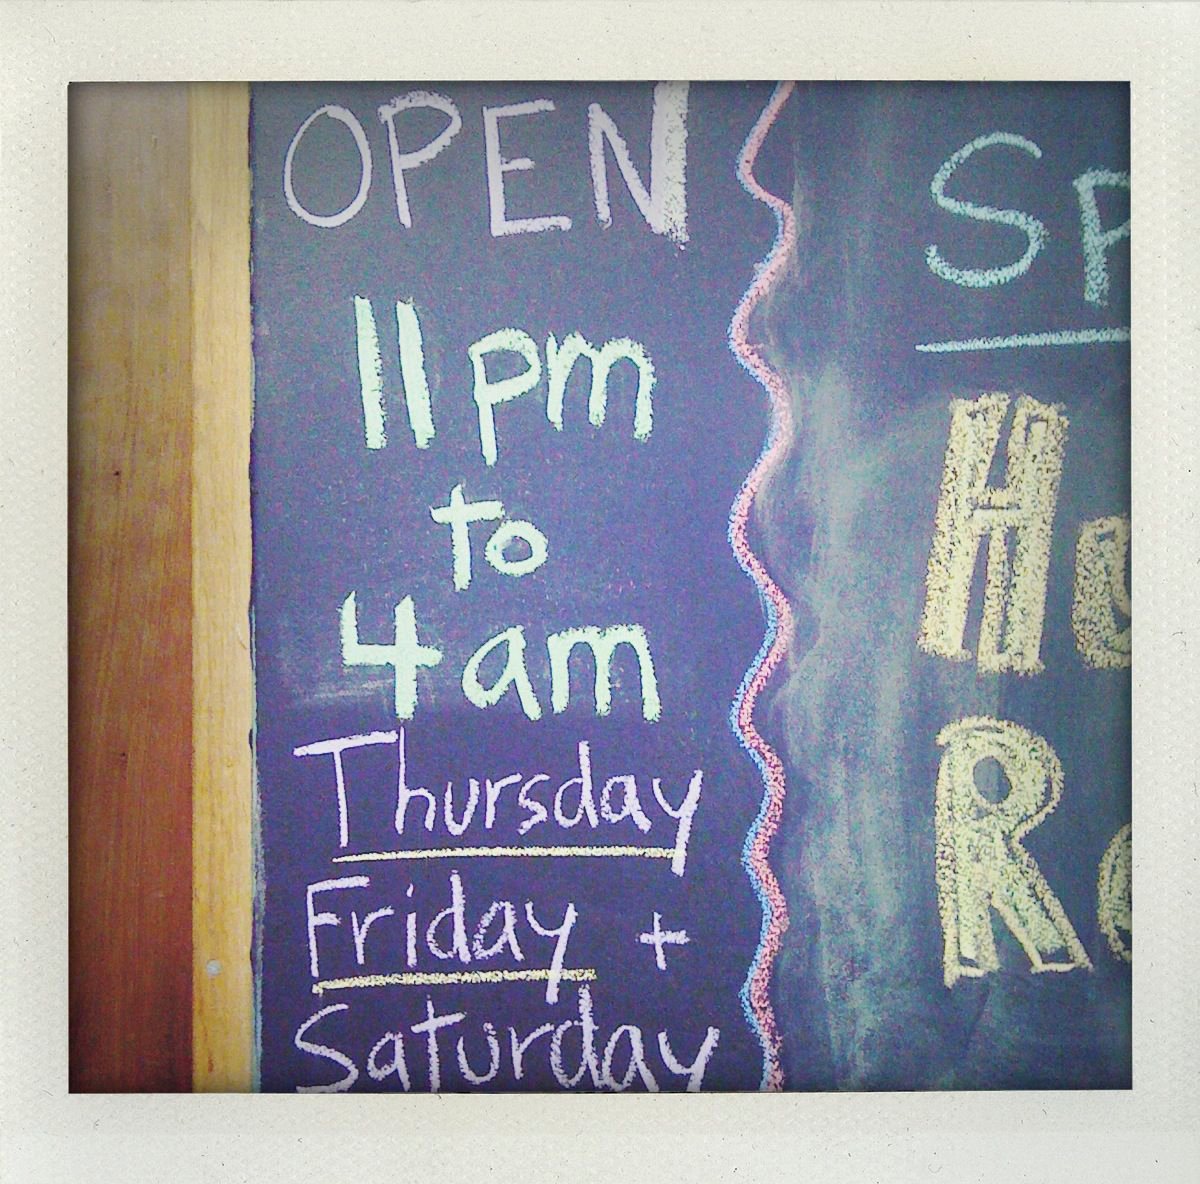 OPEN
11 pm
to
4 am
Thursday
Friday +
Saturday